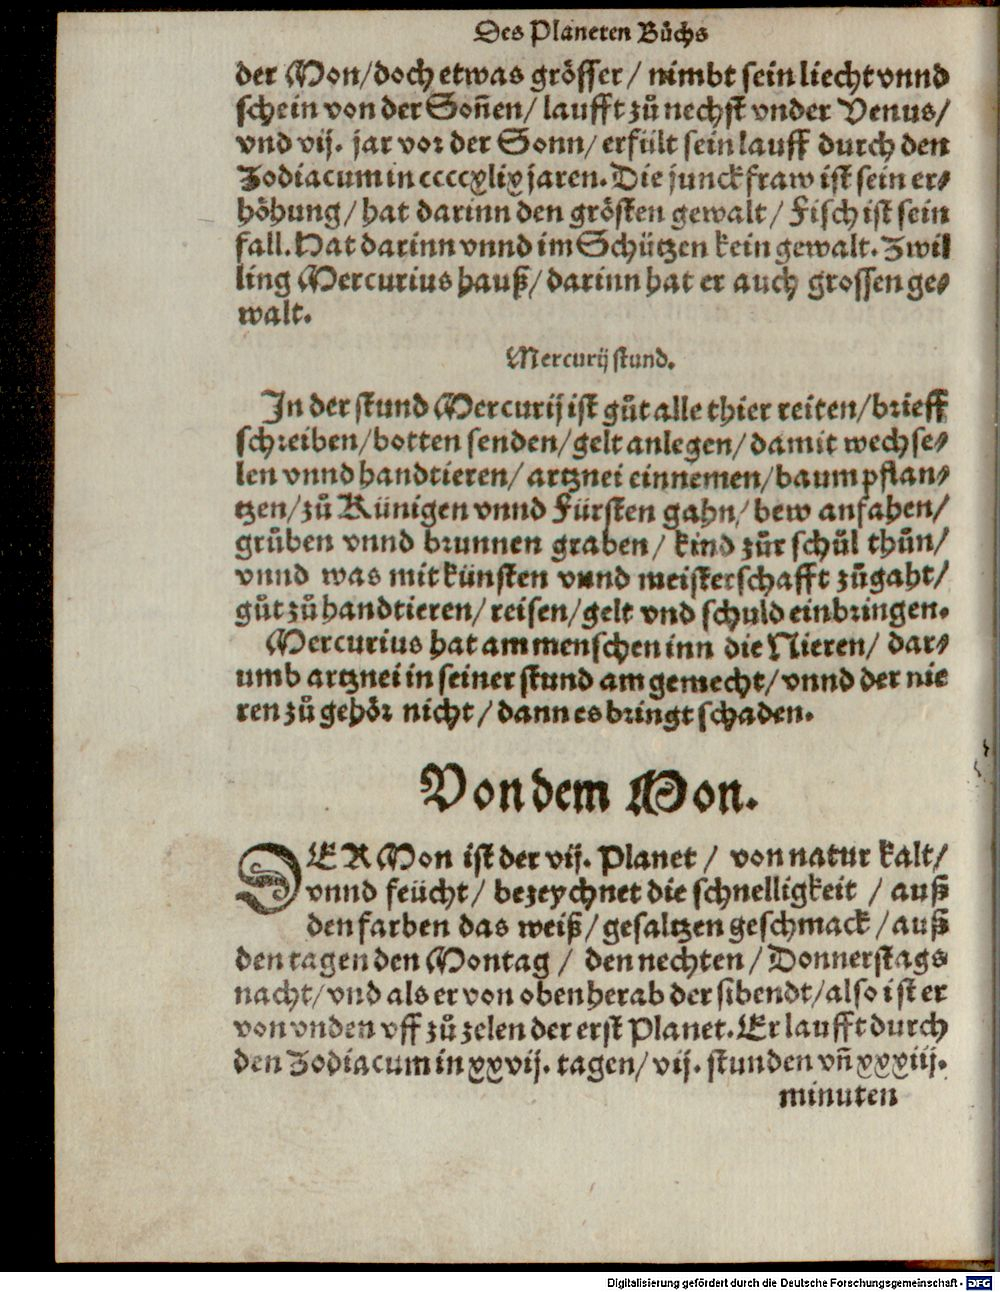 Des Planeten Bůchs
der Mon/doch etwas grösser/ nimbt sein liecht vnnd
schein von der Soñen/ laufft zů nechst vnder Venus/
vnd vij. jar vor der Sonn/ erfült sein lauff durch den
Zodiacum in ccccxlix jaren. Die junckfraw ist sein er⸗
höhung/ hat darinn den grösten gewalt/ Fisch ist sein
fall. Hat darinn vnnd im Schützen kein gewalt. Zwil
ling Mercurius hauß/ darinn hat er auch grossen ge⸗
walt.
Mercurij stund.
In der stund Mercurij ist gůt alle thier reiten/brieff
schreiben/botten senden/gelt anlegen/damit wechse⸗
len vnnd handtieren/ artznei einnemen/baum pflan⸗
tzen/zů Künigen vnnd Fürsten gahn/bew anfahen/
grůben vnnd brunnen graben/ kind zůr schůl thůn/
vnnd was mit künsten vnnd meisterschafft zůgaht/
gůt zů handtieren/ reisen/gelt vnd schuld einbringen.
Mercurius hat am menschen inn die Nieren/ dar⸗
umb artznei in seiner stund am gemecht/ vnnd der nie
ren zů gehör nicht/ dann es bringt schaden.
Von dem Mon.
DER Mon ist der vij. Planet/ von natur kalt/
vnnd feücht/ bezeychnet die schnelligkeit / auß
den farben das weiß/ gesaltzen geschmack/ auß
den tagen den Montag / den nechten/ Donnerstags
nacht/ vnd als er von oben herab der sibendt/also ist er
von vnden vff zů zelen der erst Planet. Er laufft durch
den Zodiacum in xxvij. tagen/ vij. stunden vñ xxxiij.
minuten
Digitalisierung gefördert durch die Deutsche Forschungsgemeinschaft - DFG